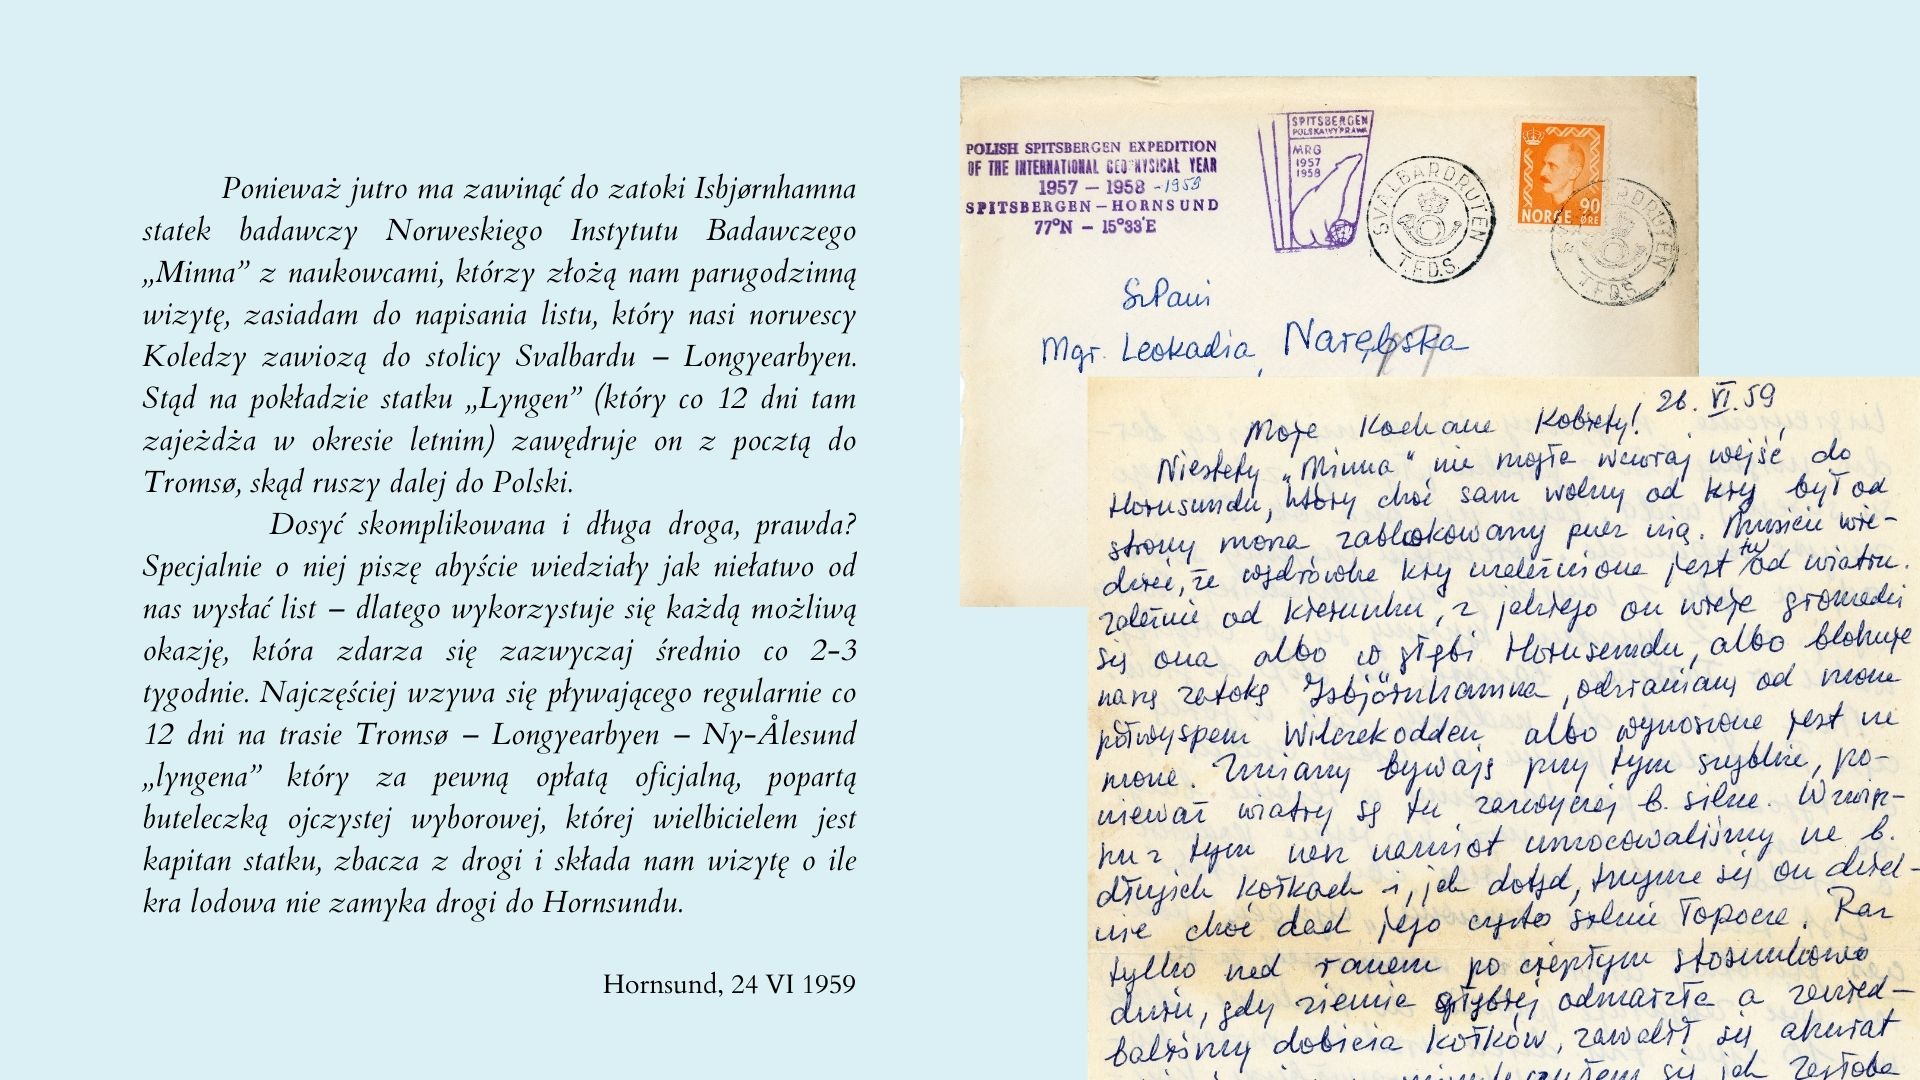 Ponieważ jutro ma zawinąć do zatoki Isbjørnhamna
statek badawczy Norweskiego Instytutu Badawczego
„Minna” z naukowcami, którzy złożą nam parugodzinną
wizytę, zasiadam do napisania listu, który nasi norwescy
Koledzy zawiozą do stolicy Svalbardu – Longyearbyen.
Stąd na pokładzie statku „Lyngen” (który co 12 dni tam
zajeżdża w okresie letnim) zawędruje on z pocztą do
Tromsø, skąd ruszy dalej do Polski.
Dosyć skomplikowana i długa droga, prawda?
Specjalnie o niej piszę abyście wiedziały jak niełatwo od
nas wysłać list – dlatego wykorzystuje się każdą możliwą
okazję, która zdarza się zazwyczaj średnio co 2-3
tygodnie. Najczęściej wzywa się pływającego regularnie co
12 dni na trasie Tromsø – Longyearbyen – Ny-Ålesund
„lyngena” który za pewną opłatą oficjalną, popartą
buteleczką ojczystej wyborowej, której wielbicielem jest
kapitan statku, zbacza z drogi i składa nam wizytę o ile
kra lodowa nie zamyka drogi do Hornsundu.
Hornsund, 24 VI 1959
POLISH SPITSBERGEN EXPEDITION
OF THE INTERNATIONAL GEOPHYSICAL YEAR
1957 – 1958 -1959
SPITSBERGEN – HORNSUND
77°N – 15°33'E
SPITSBERGEN
POLSKA WYPRAWA
MRG
1957
1958
SVALBARDRUTEN
T.F.D.S.
NORGE 90
ØRE
SVALBARDRUTEN
T.F.D.S.
Sz Pani
Mgr. Leokadia Narębska
26. VI. 59
Moje Kochane Kobiety!
Niestety „Minna" nie mogła wczoraj wejść do
Hornsundu, który choć sam wolny od kry był od
strony morza zablokowany przez nią. Musicie wie-
dzieć, że wędrówka kry uzależniona jest tu od wiatru.
zależnie od kierunku, z jakiego on wieje gromadzi
się ona albo w głębi Hornsundu, albo blokuje
naszą zatokę Isbjörnhamna, odzielaną od morza
półwyspem Wilczekodden albo wynoszona jest na
morze. Zmiany bywają przy tym szybkie, po-
nieważ wiatry są tu zazwyczaj b. silne. W związ-
ku z tym nasz namiot umocowaliśmy na b.
długich kołkach i, jak dotąd, trzyma się on dziel-
nie choć dach jego często silnie łopoce. Raz
tylko nad ranem po ciepłym stosunkowo
dniu, gdy ziemia głębiej odmarzła a zanied-
baliśmy dobicia kołków, zawalił się akurat